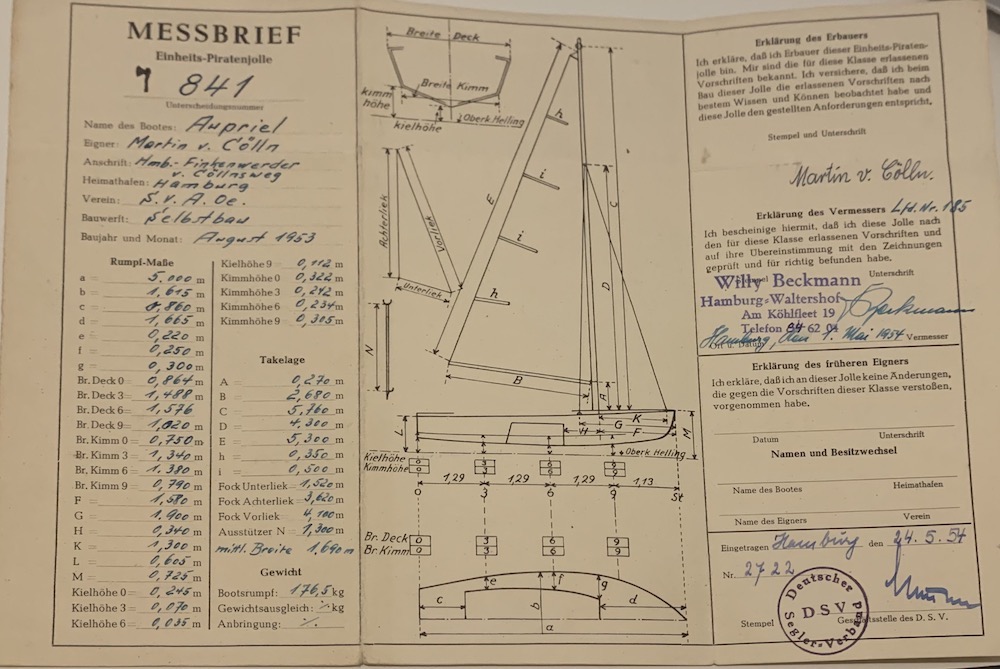 MESSBRIEF
Einheits-Piratenjolle
841
Unterscheidungsnummer
Name des Bootes: Aupriel
Eigner: Martin v. Cölln
Anschrift: Hmb.-Finkenwerder
v. Cöllnsweg
Heimathafen: Hamburg
Verein: S.v.A.Oe.
Bauwerft: Selbstbau
Baujahr und Monat: August 1953
Rumpf-Maße
a = 5.000 m
b = 1,615 m
c = 0,860 m
d = 1,665 m
e = 0,220 m
f = 0,250 m
g = 0,300 m
Br. Deck 0 = 0,864 m
Br. Deck 3 = 1,488 m
Br. Deck 6 = 1,576 m
Br. Deck 9 = 1,020 m
Br. Kimm 0 = 0,750 m
Br. Kimm 3 = 1,340 m
Br. Kimm 6 = 1.380 m
Br. Kimm 9 = 0,790 m
F = 1,580 m
G = 1.900 m
H = 0,340 m
K = 1,300 m
L = 0,605 m
M = 0,725 m
Kielhöhe 0 = 0,245 m
Kielhöhe 3 = 0,070 m
Kielhöhe 6 = 0,035 m
Kielhöhe 9 = 0,112 m
Kimmhöhe 0 = 0,322 m
Kimmhöhe 3 = 0,242 m
Kimmhöhe 6 = 0,234 m
Kimmhöhe 9 = 0,305 m
Takelage
A = 0,270 m
B = 2,680 m
C = 5,760 m
D = 4,300 m
E = 5,300 m
h = 0,350 m
i = 0,500 m
Fock Unterliek = 1,520 m
Fock Achterliek = 3,620 m
Fock Vorliek = 4,100 m
Ausstützer N = 1,300 m
mittl. Breite 1,690 m
Gewicht
Bootsrumpf: 176,5 kg
Gewichtsausgleich: ./. kg
Anbringung: ./.
Breite Deck
Breite Kimm
kimm
höhe
kielhöhe
Oberk Helling
Achterliek
Vorliek
Unterliek
E
h
i
i
h
N
B
C
D
A
K
G
H
F
L
M
Oberk Helling
Kielhöhe
Kimmhöhe
0 3 6 9
0 3 6 9
1,29 1,29 1,29 1,13
0 3 6 9 St
Br. Deck 0 3 6 9
Br Kimm 0 3 6 9
e f g
c b d
a
Erklärung des Erbauers
Ich erkläre, daß ich Erbauer dieser Einheits-Piraten-
jolle bin. Mir sind die für diese Klasse erlassenen
Vorschriften bekannt. Ich versichere, daß ich beim
Bau dieser Jolle die erlassenen Vorschriften nach
bestem Wissen und Können beobachtet habe und
diese Jolle den gestellten Anforderungen entspricht.
Stempel und Unterschrift
Martin v. Cölln.
Erklärung des Vermessers Lfd. Nr. 185
Ich bescheinige hiermit, daß ich diese Jolle nach
den für diese Klasse erlassenen Vorschriften und
auf ihre Übereinstimmung mit den Zeichnungen
geprüft und für richtig befunden habe.
Stempel Unterschrift
Willy Beckmann
Hamburg-Waltershof
Am Köhlfleet 19
Telefon 84 62 04
Beckmann
Hamburg, den 7. Mai 1954 Vermesser
Ort u. Datum
Erklärung des früheren Eigners
Ich erkläre, daß ich an dieser Jolle keine Änderungen,
die gegen die Vorschriften dieser Klasse verstoßen,
vorgenommen habe.
Datum Unterschrift
Namen und Besitzwechsel
Name des Bootes Heimathafen
Name des Eigners Verein
Eingetragen Hamburg den 24.5.54
Nr. 2722
Deutscher
DSV
Segler-Verband
Stempel Geschäftsstelle des D. S. V.